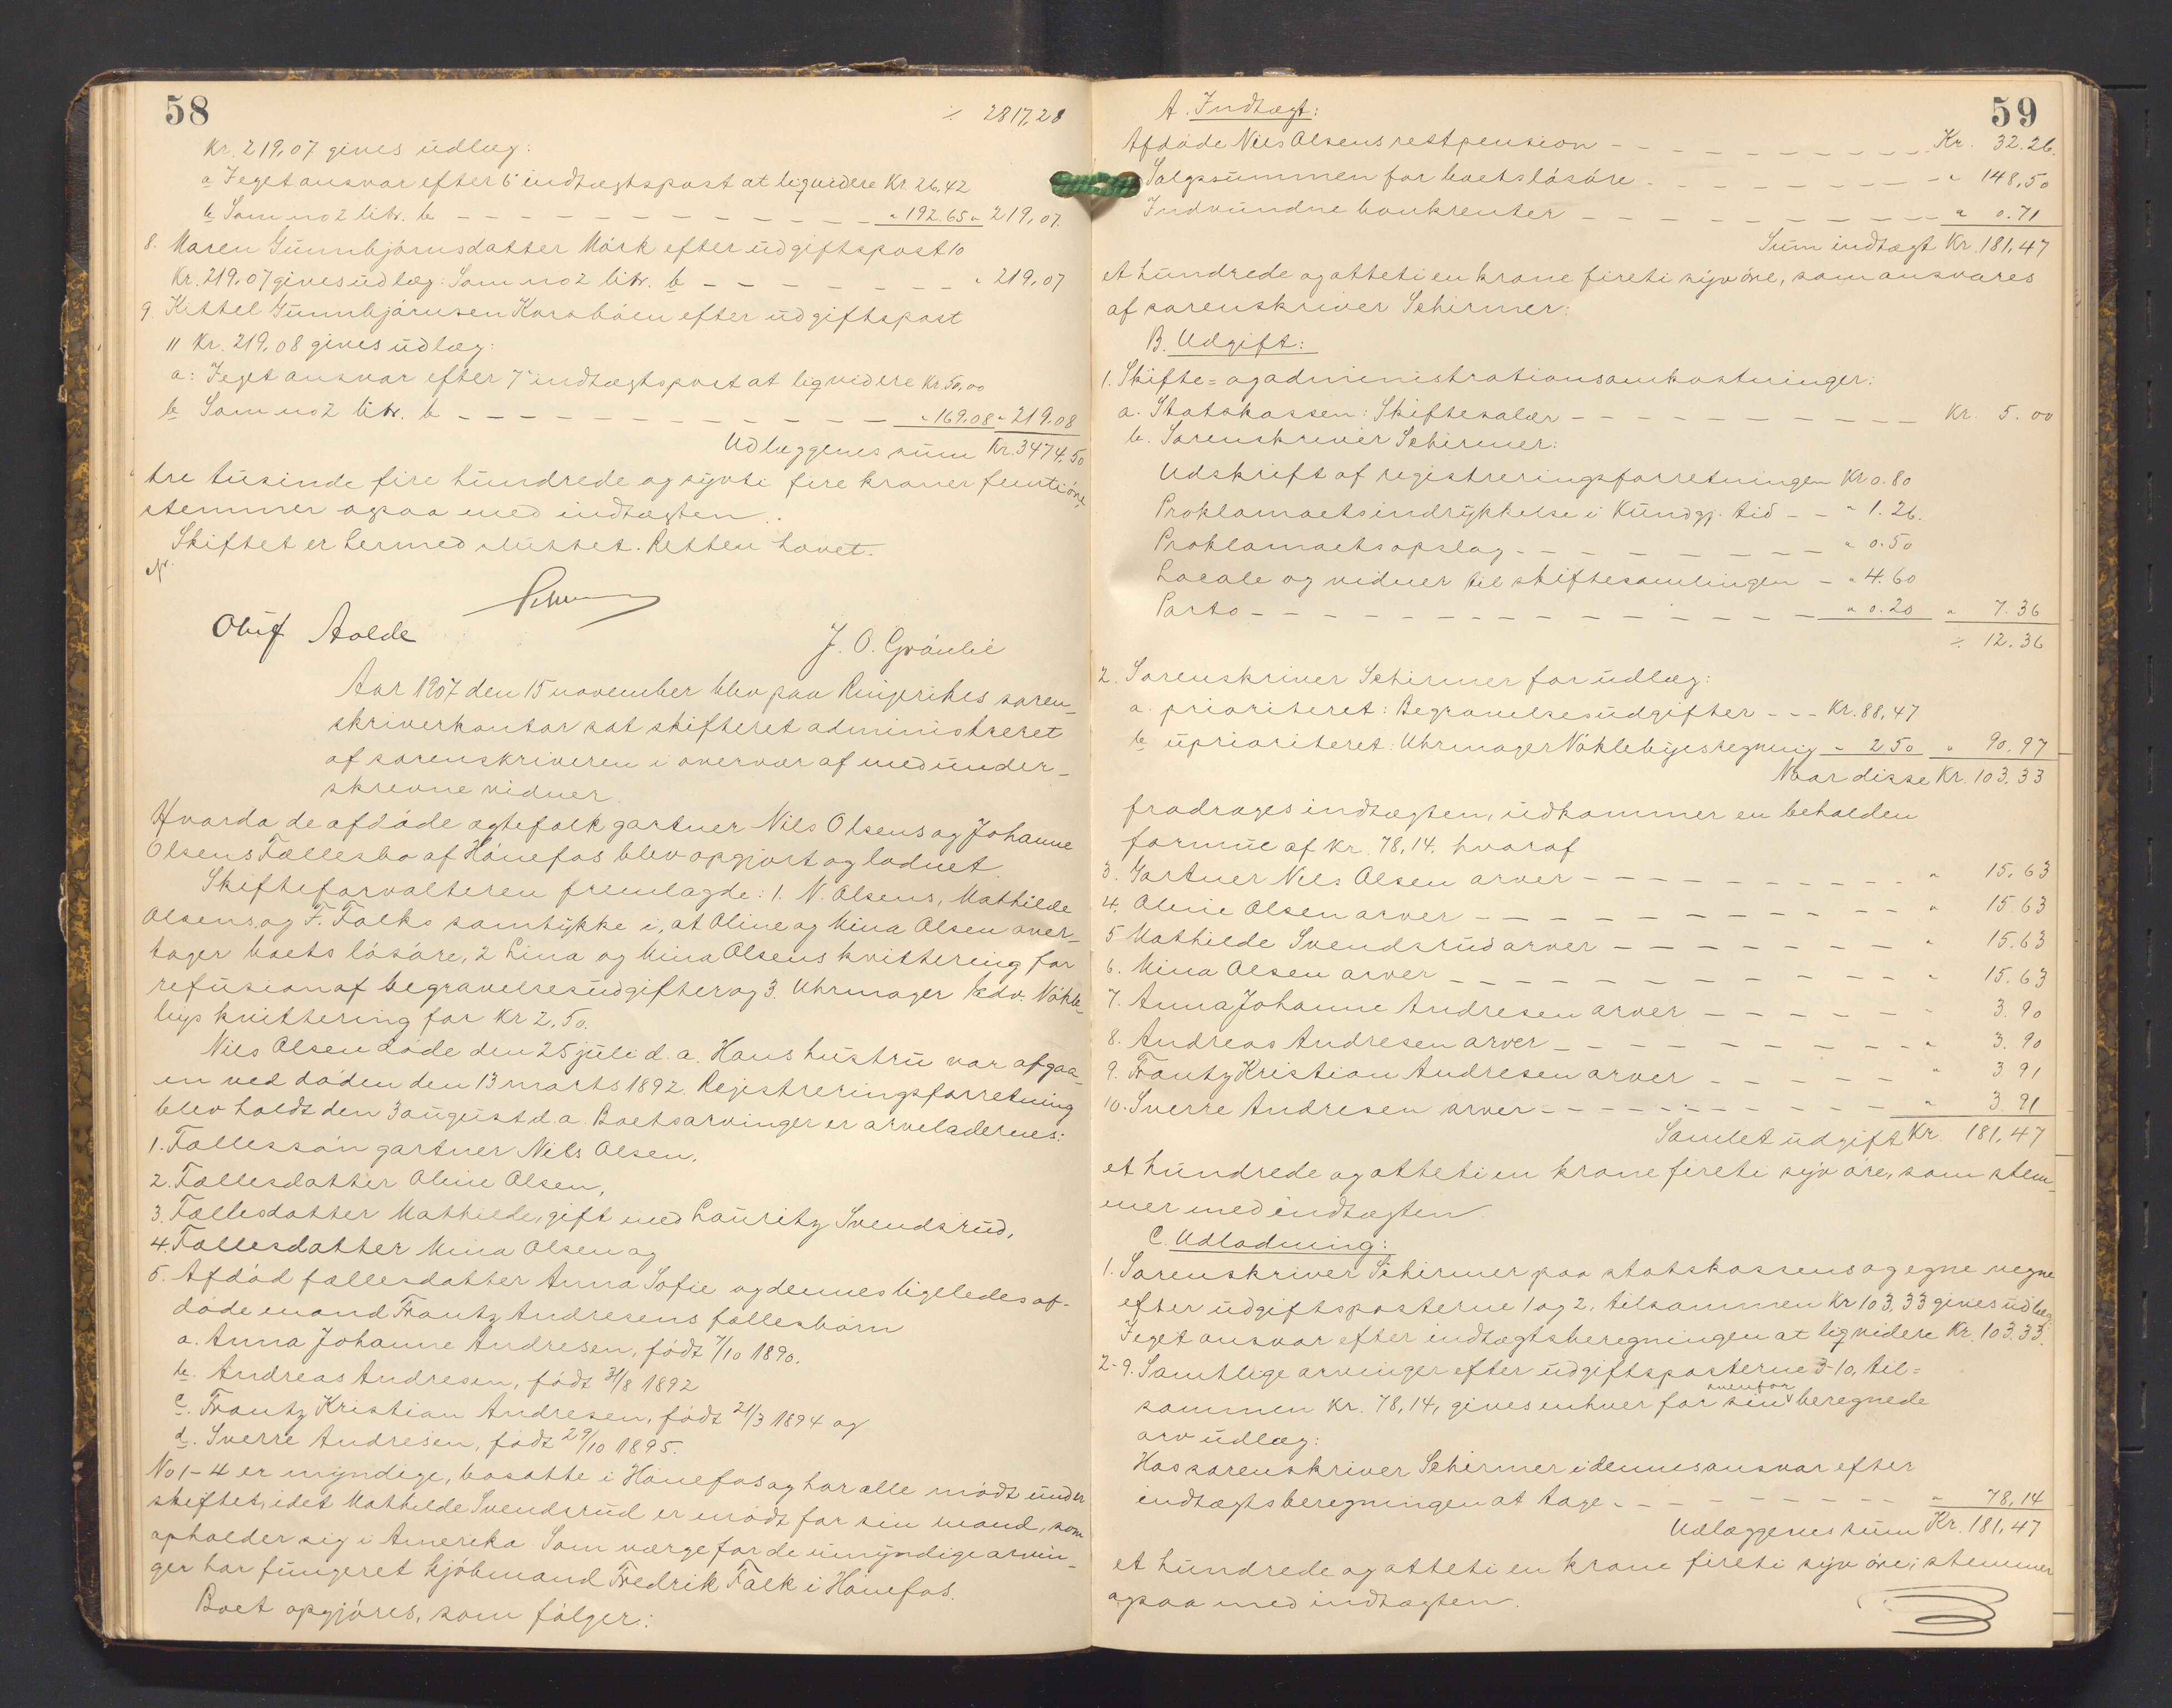 58
÷ 2817,28
Kr. 219,07 gives udlæg:
a I eget ansvar efter 6' indtægtspost at liqvidere Kr. 26,42
b Som no 2 litr. b - - - - - - - - - - - - " 192.65 " 219,07.
8. Maren Gunnbjørnsdatter Mørk efter udgiftspost 10
Kr. 219.07 gives udlæg: Som no 2 litr. b - - - - - - - - " 219,07
9. Kittel Gunnbjørnsen Korsbøen efter udgiftspost
11 Kr. 219,08 gives udlæg:
a: I eget ansvar efter 7' indtægtspost at liqvidere Kr 50,00
b Som no 2 litr. b - - - - - - - - - - - " 169.08 " 219.08
Udlæggenes sum Kr. 3474.50
tre tusinde fire hundrede og sytti fire kroner femti øre,
stemmer ogsaa med indtægten.
Skiftet er hermed sluttet. Retten hævet.
Oluf Aalde
J. O. Grønlie
Aar 1907 den 15 november blev paa Ringerikes soren-
skriverkontor sat skifteret administreret
af sorenskriveren i overvær af medunder-
skrevne vidner.
Hvorda de afdøde egtefolk gartner Nils Olsens og Johanne
Olsens Fællesbo af Hønefos blev opgjort og lodnet.
Skifteforvalteren fremlagde: 1. N. Olsens, Mathilde
Olsens og F. Falks samtykke i, at Oline og Mina Olsen over-
tager boets løsøre, 2 Lina og Mina Olsens kvittering for
refusion af begravelsesudgifter og 3. Uhrmager Edv. Nøkle-
bys kvittering for Kr 2,50.
Nils Olsen døde den 25 juli d. a. Hans hustru var afgaa-
en ved døden den 13 marts 1892. Registreringsforretning
blev holdt den 3 august d. a. Boets arvinger er arveladernes:
1. Fællessøn gartner Nils Olsen,
2. Fællesdatter Oline Olsen,
3. Fællesdatter Mathilde, gift med Lauritz Svendsrud,
4. Fællesdatter Mina Olsen og
5. Afdød fællesdatter Anna Sofie og dennes ligeledes af-
døde mand Frantz Andresens fællesbørn
a. Anna Johanne Andresen, født 7/10 1890.
b. Andreas Andresen, født 31/8 1892
c. Frantz Kristian Andresen, født 21/3 1894 og
d. Sverre Andresen, født 29/10 1895.
No 1-4 er myndige, bosatte i Hønefos og har alle mødt under
skiftet, idet Mathilde Svendsrud er mødt for sin mand, som
opholder sig i Amerika. Som værge for de umyndige arvin-
ger har fungeret kjøbmand Fredrik Falk i Hønefos.
Boet opgjøres, som følger:
59
A. Indtægt:
Afdøde Nils Olsens restpension - - - - - - - - - - Kr. 32.26.
Salgssummen for boets løsøre - - - - - - - - - - " 148,50
Indvundne bankrenter - - - - - - - - - - - " 0.71
Sum indtægt Kr. 181,47
et hundrede og otteti en krone fireti syv øre, som ansvares
af sorenskriver Schirmer:
B. Udgift:
1. Skifte= og administrationsomkostninger:
a. Statskassen: Skiftesalær - - - - - - - - - - Kr. 5.00
b. Sorenskriver Schirmer:
Udskrift af registreringsforretningen Kr 0.80
Proklamaets indrykkelse i Kundgj. tid - - " 1.26.
Proklamaets opslag - - - - - - - - - " 0.50
Locale og vidner til skiftesamlingen - " 4.60
Porto - - - - - - - - - - - - - - - " 0.20 " 7.36
÷ 12.36
2. Sorenskriver Schirmer for udlæg:
a. prioriteret: Begravelsesudgifter - - - Kr. 88,47
b uprioriteret: Uhrmager Nøklebyes regning " 2 50 " 90.97
Naar disse Kr. 103.33
fradrages indtægten, udkommer en beholden
formue af Kr. 78,14. hvoraf
3. Gartner Nils Olsen arver - - - - - - - - - - " 15,63
4. Oline Olsen arver - - - - - - - - - - - - " 15 63
5 Mathilde Svendsrud arver - - - - - - - - - " 15.63
6. Mina Olsen arver - - - - - - - - - - - - " 15.63
7. Anna Johanne Andresen arver - - - - - - - " 3.90
8. Andreas Andresen arver - - - - - - - - - - " 3.90
9. Frantz Kristian Andresen arver - - - - - - " 3 91
10. Sverre Andresen arver - - - - - - - - - - " 3.91
Samlet udgift Kr. 181,47
et hundrede og otteti en krone fireti syv øre, som stem-
mer med indtægten.
C. Udlodning:
1. Sorenskriver Schirmer paa statskassens og egne vegne
efter udgiftsposterne 1 og 2, tilsammen Kr 103,33 gives udlæg
I eget ansvar efter indtægtsberegningen at liqvidere Kr. 103.33.
2-9. Samtlige arvinger efter udgiftsposterne 3-10, til=
sammen Kr. 78,14, gives enhver for sin ovenfor beregnede
arv udlæg:
Hos sorenskriver Schirmer i dennes ansvar efter
indtægtsberegningen at tage - - - - - - - - - " 78,14
Udlæggenes sum Kr. 181,47
et hundrede og otteti en krone fireti syv øre; stemmer
ogsaa med indtægten.